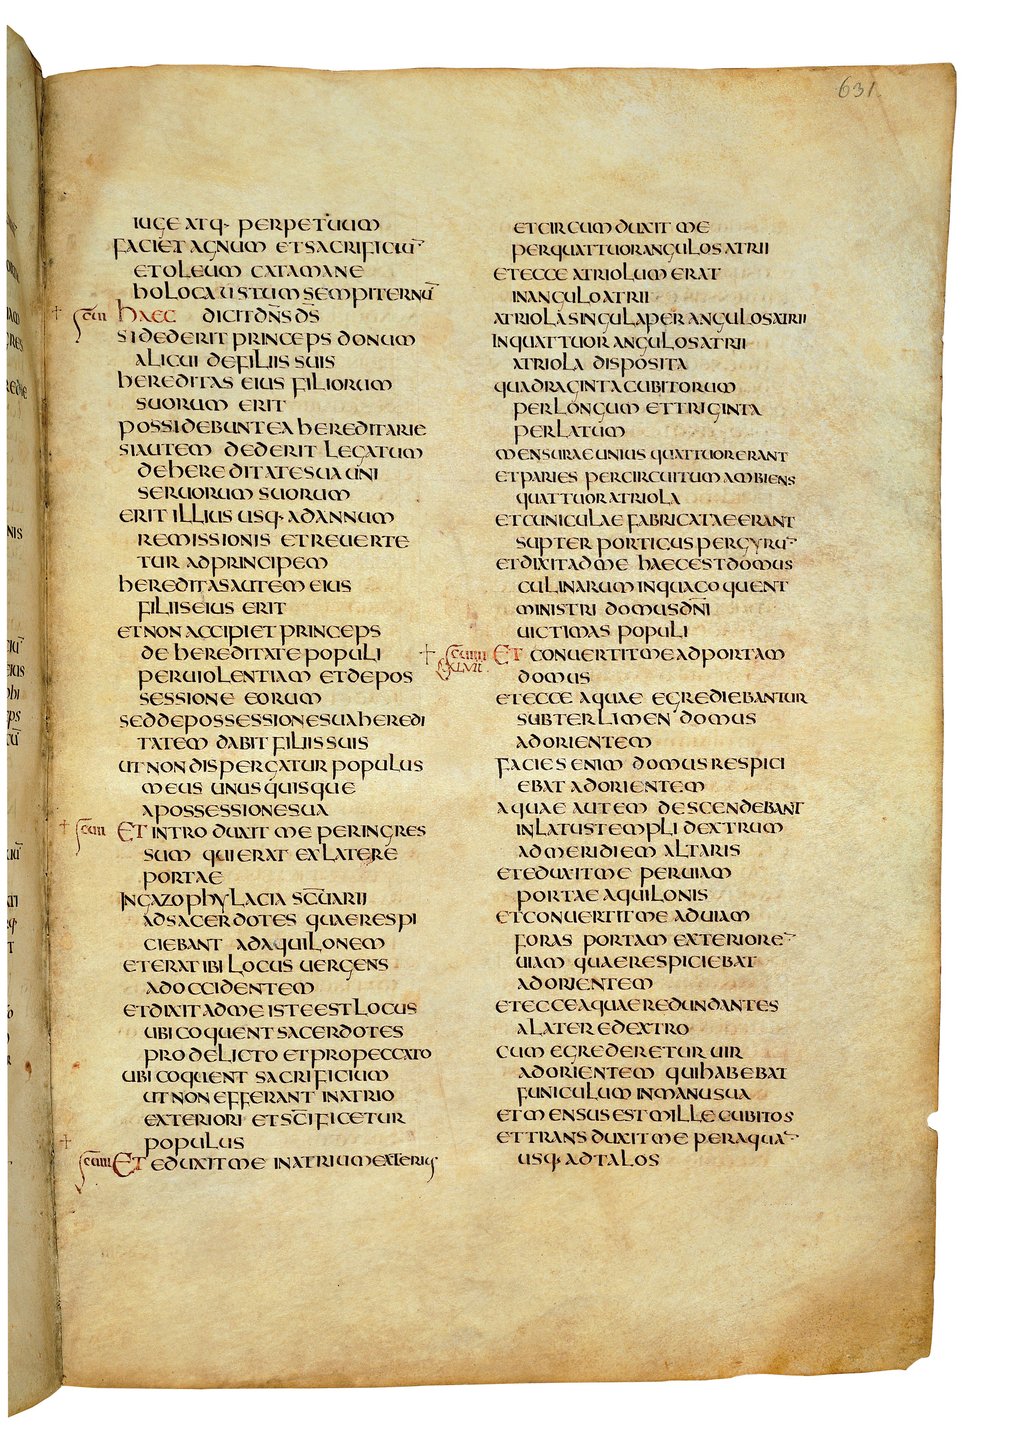 631
IUGE ATQ· PERPETUUM
FACIET AGNUM ET SACRIFICIŪ
ET OLEUM CATA MANE
HOLOCAUSTUM SEMPITERNŪ
HAEC DICIT DN̄S D̄S
SI DEDERIT PRINCEPS DONUM
ALICUI DE FILIIS SUIS
HEREDITAS EIUS FILIORUM
SUORUM ERIT
POSSIDEBUNT EA HEREDITARIE
SI AUTEM DEDERIT LEGATUM
DE HEREDITATE SUA UNI
SERUORUM SUORUM
ERIT ILLIUS USQ· AD ANNUM
REMISSIONIS ET REUERTE
TUR AD PRINCIPEM
HEREDITAS AUTEM EIUS
FILIIS EIUS ERIT
ET NON ACCIPIET PRINCEPS
DE HEREDITATE POPULI
PER UIOLENTIAM ET DE POS
SESSIONE EORUM
SED DE POSSESSIONE SUA HEREDI
TATEM DABIT FILIIS SUIS
UT NON DISPERGATUR POPULUS
MEUS UNUSQUISQUE
A POSSESSIONE SUA
ET INTRODUXIT ME PER INGRES
SUM QUI ERAT EX LATERE
PORTAE
IN GAZOPHYLACIA SC̄UARII
AD SACERDOTES QUAE RESPI
CIEBANT AD AQUILONEM
ET ERAT IBI LOCUS UERGENS
AD OCCIDENTEM
ET DIXIT AD ME ISTE EST LOCUS
UBI COQUENT SACERDOTES
PRO DELICTO ET PRO PECCATO
UBI COQUENT SACRIFICIUM
UT NON EFFERANT IN ATRIO
EXTERIORI ET SC̄IFICETUR
POPULUS
ET EDUXIT ME IN ATRIUM EXTERIUS
ET CIRCUMDUXIT ME
PER QUATTUOR ANGULOS ATRII
ET ECCE ATRIOLUM ERAT
IN ANGULO ATRII
ATRIOLA SINGULA PER ANGULOS ATRII
IN QUATTUOR ANGULOS ATRII
ATRIOLA DISPOSITA
QUADRAGINTA CUBITORUM
PER LONGUM ET TRIGINTA
PER LATUM
MENSURAE UNIUS QUATTUOR ERANT
ET PARIES PER CIRCUITUM AMBIENS
QUATTUOR ATRIOLA
ET CUNICULAE FABRICATAE ERANT
SUPTER PORTICUS PER GYRŪ
ET DIXIT AD ME HAEC EST DOMUS
CULINARUM IN QUA COQUENT
MINISTRI DOMUS DN̄I
UICTIMAS POPULI
ET CONUERTIT ME AD PORTAM
DOMUS
ET ECCE AQUAE EGREDIEBANTUR
SUBTER LIMEN DOMUS
AD ORIENTEM
FACIES ENIM DOMUS RESPICI
EBAT AD ORIENTEM
AQUAE AUTEM DESCENDEBANT
IN LATUS TEMPLI DEXTRUM
AD MERIDIEM ALTARIS
ET EDUXIT ME PER UIAM
PORTAE AQUILONIS
ET CONUERTIT ME AD UIAM
FORAS PORTAM EXTERIORĒ
UIAM QUAE RESPICIEBAT
AD ORIENTEM
ET ECCE AQUAE REDUNDANTES
A LATERE DEXTRO
CUM EGREDERETUR UIR
AD ORIENTEM QUI HABEBAT
FUNICULUM IN MANU SUA
ET MENSUS EST MILLE CUBITOS
ET TRANSDUXIT ME PER AQUĀ
USQ· AD TALOS